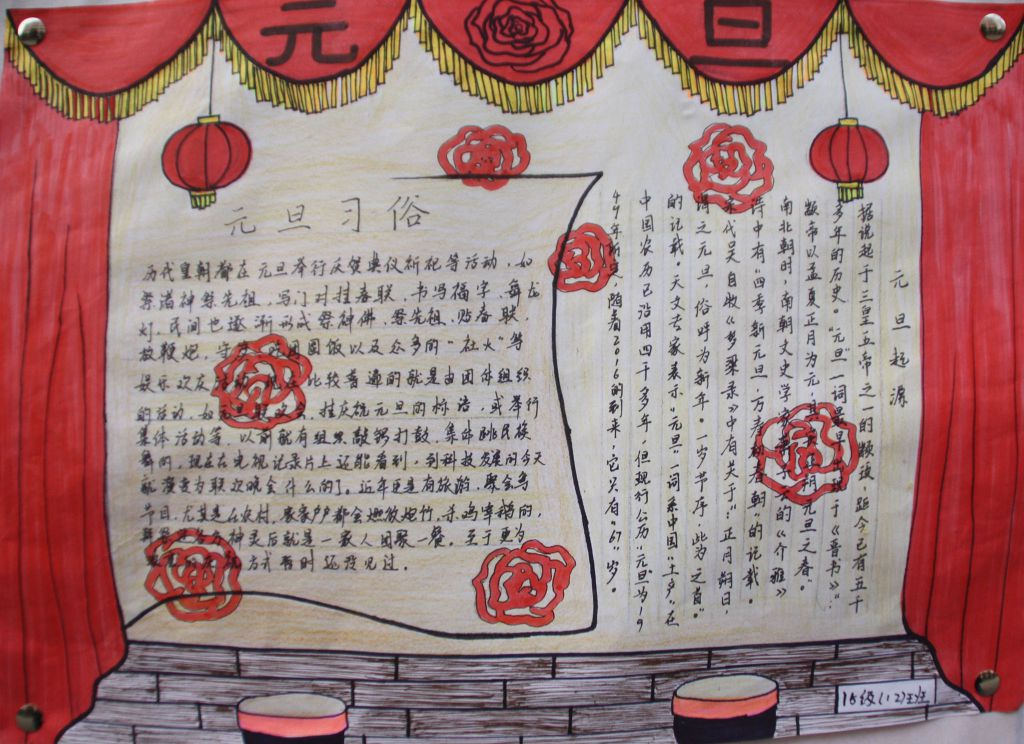 元旦
元旦习俗
历代皇朝都在元旦举行庆贺典仪祈祀等活动，如
祭诸神祭先祖，写门对挂春联，书写福字、舞龙
灯，民间也逐渐形成祭神佛、祭先祖、贴春联、
放鞭炮、守岁、吃团圆饭以及众多的“社火”等
娱乐欢庆活动。现在比较普遍的就是由团体组织
的活动，如元旦联欢会、挂庆祝元旦的标语，或举行
集体活动等，以前就有组织敲锣打鼓，集体跳民族
舞的，现在在电视记录片上还能看到，到科技发展的今天
就演变为联欢晚会什么的了。近年更是有旅游，聚会等
节目，尤其是在农村，家家户户都会燃放炮竹，杀鸡宰鹅的，
神灵后就是一家人团聚一餐。至于更为
方式暂时还没见过。
元旦起源
据说起于三皇五帝之一的颛顼，距今已有五千
多年的历史。“元旦”一词最早出现于《晋书》：
“颛帝以孟夏正月为元，
元旦之春。”
南北朝时，南朝文史学家
的《介雅》
诗中有“四季新元旦，万寿初春朝”的记载。
宋代吴自牧《梦粱录》中有关于“正月朔日，
谓之元旦，俗呼为新年。一岁节序，此为之首”
的记载。天文专家表示“元旦”一词系中国“土产”在
中国农历已沿用四千多年，但现行公历“元旦”为19
49年所定，随着2016的到来，它只有“67”岁。
15级(12)班